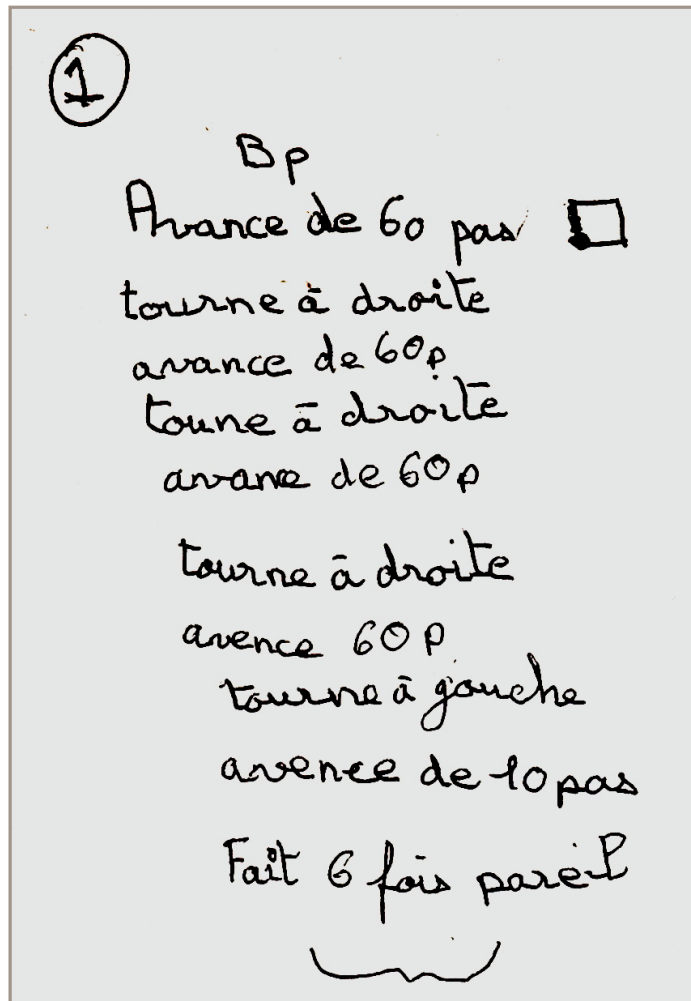 1
Bp
Avance de 60 pas
tourne à droite
avance de 60p
toune à droite
avane de 60p
tourne à droite
avence 60p
tourne à gauche
avence de 10 pas
Fait 6 fois pareil